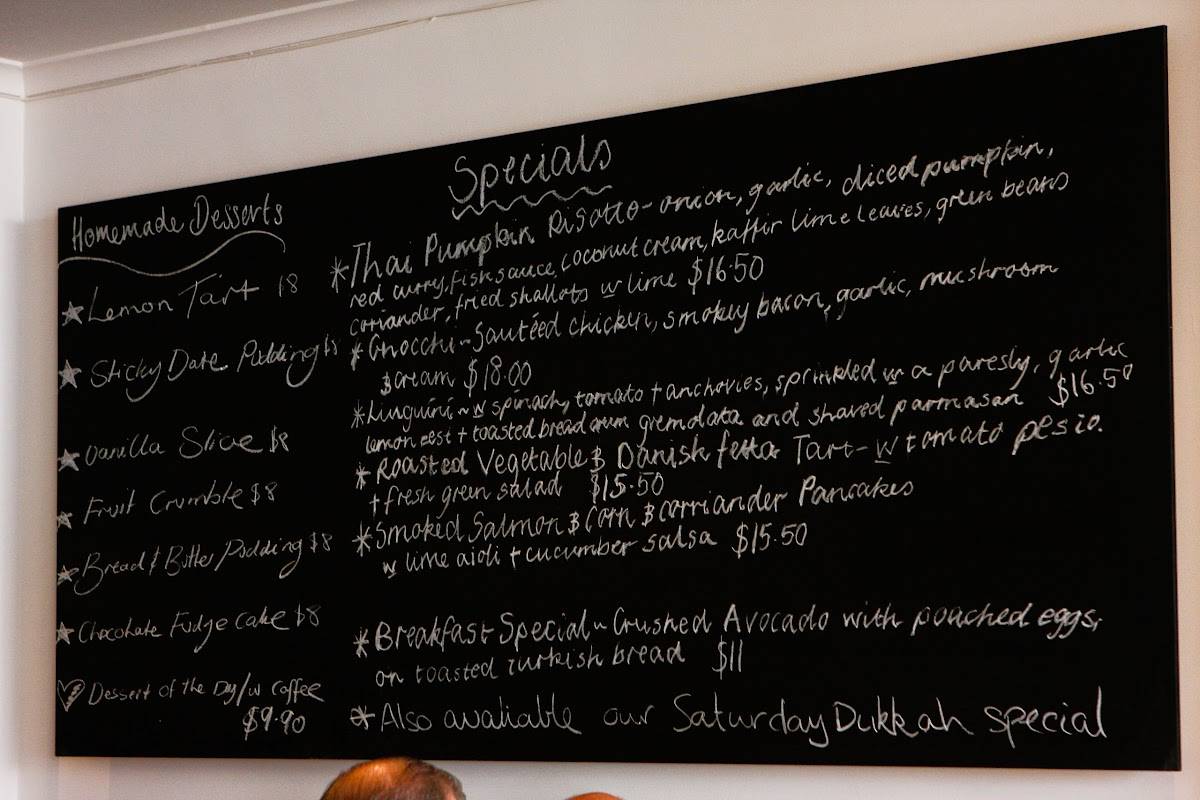 Homemade Desserts
★Lemon Tart $8
★Sticky Date Pudding $8
★Vanilla Slice $8
★Fruit Crumble $8
★Bread & Butter Pudding $8
★Chocolate Fudge Cake $8
Dessert of the Day/w coffee
$9.90
Specials
*Thai Pumpkin Risotto - onion, garlic, diced pumpkin,
red curry, fish sauce, coconut cream, kaffir lime leaves, green beans
corriander, fried shallots w lime $16.50
*Gnocchi ~ Sautéed chicken, smokey bacon, garlic, mushroom
& cream $18.00
*Linguini ~ w spinach, tomato + anchovies, sprinkled w a paresly, garlic
lemon zest + toasted bread crum gremolata and shaved parmasan $16.50
*Roasted Vegetable & Danish fetta Tart - w tomato pesto.
+ fresh green salad $15.50
*Smoked Salmon & Corn & corriander Pancakes
w lime aioli + cucumber salsa $15.50
*Breakfast Special ~ Crushed Avocado with pouched eggs,
on toasted turkish bread $11
*Also avaliable our Saturday Dukkah special